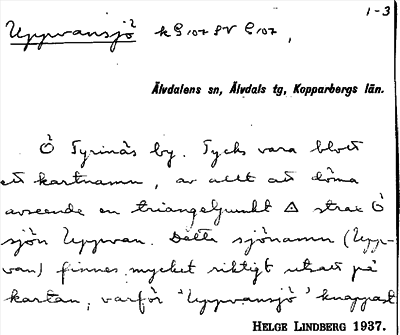 1-3
Uppvansjö k G 107 SV G 107,
Älvdalens sn, Älvdals tg, Kopparbergs län.
Ö Tyrinäs by. Tycks vara blott
ett kartnamn, av allt att döma
avseende en triangelpunkt △ strax Ö
sjön Uppvan. Detta sjönamn (Upp-
van) finnes mycket riktigt utsatt på
kartan, varför 'Uppvansjö' knappast
HELGE LINDBERG 1937.